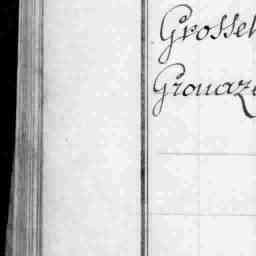 Grosset
Grouaze